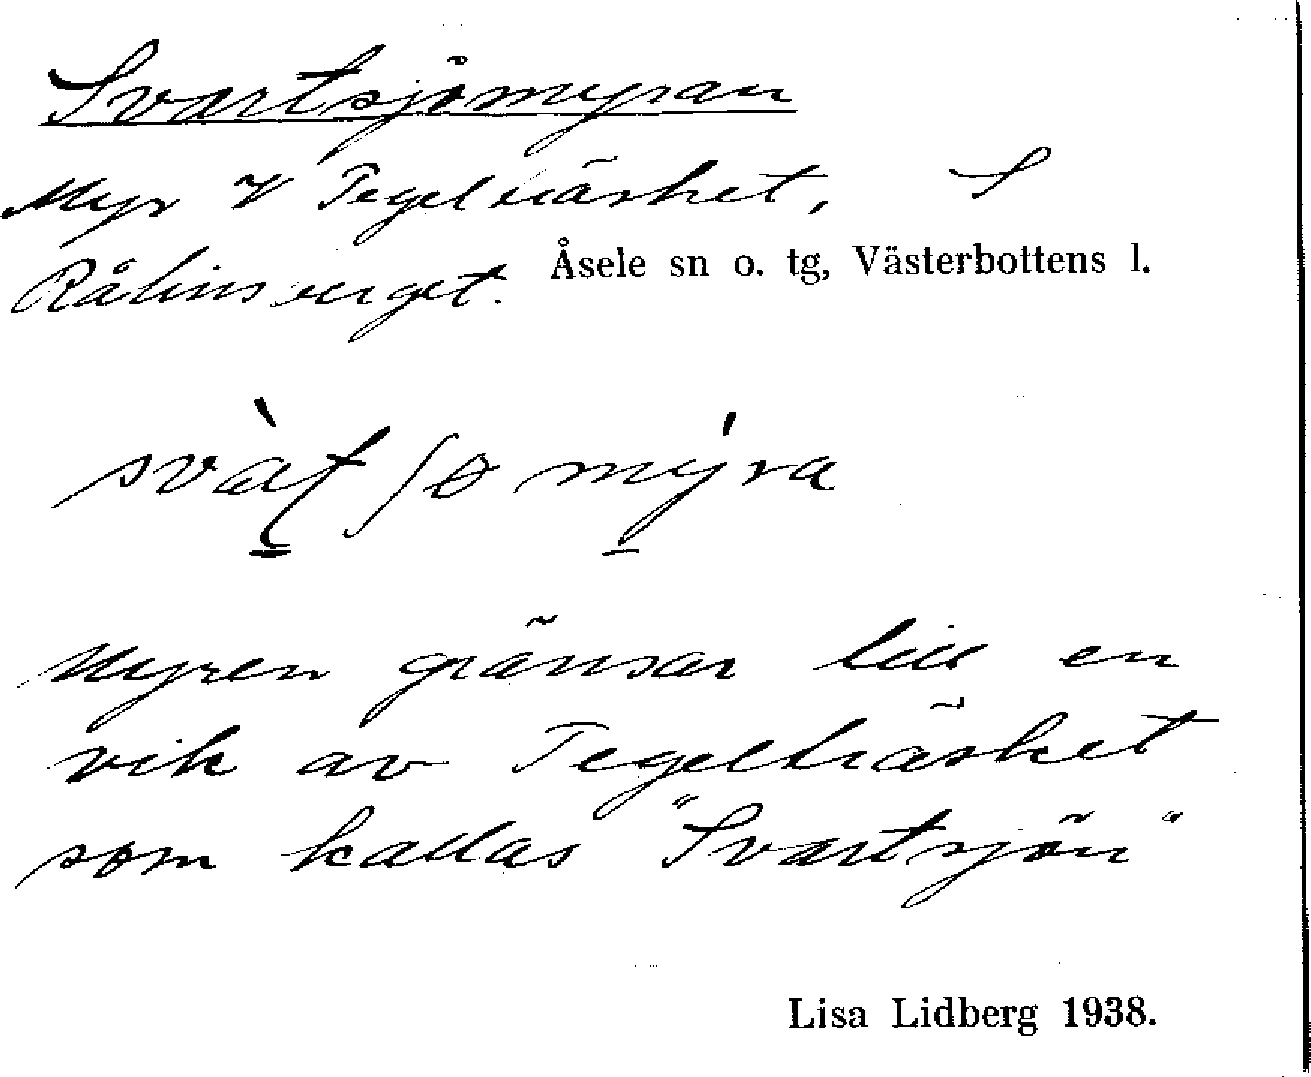 Svartsjömyran
Myr V Tegelträsket, S
Åsele sn o. tg, Västerbottens l.
svàt ʃo mýra
Myren gränsar till en
vik av Tegelträsket
som kallas "Svartsjön"
Lisa Lidberg 1938.